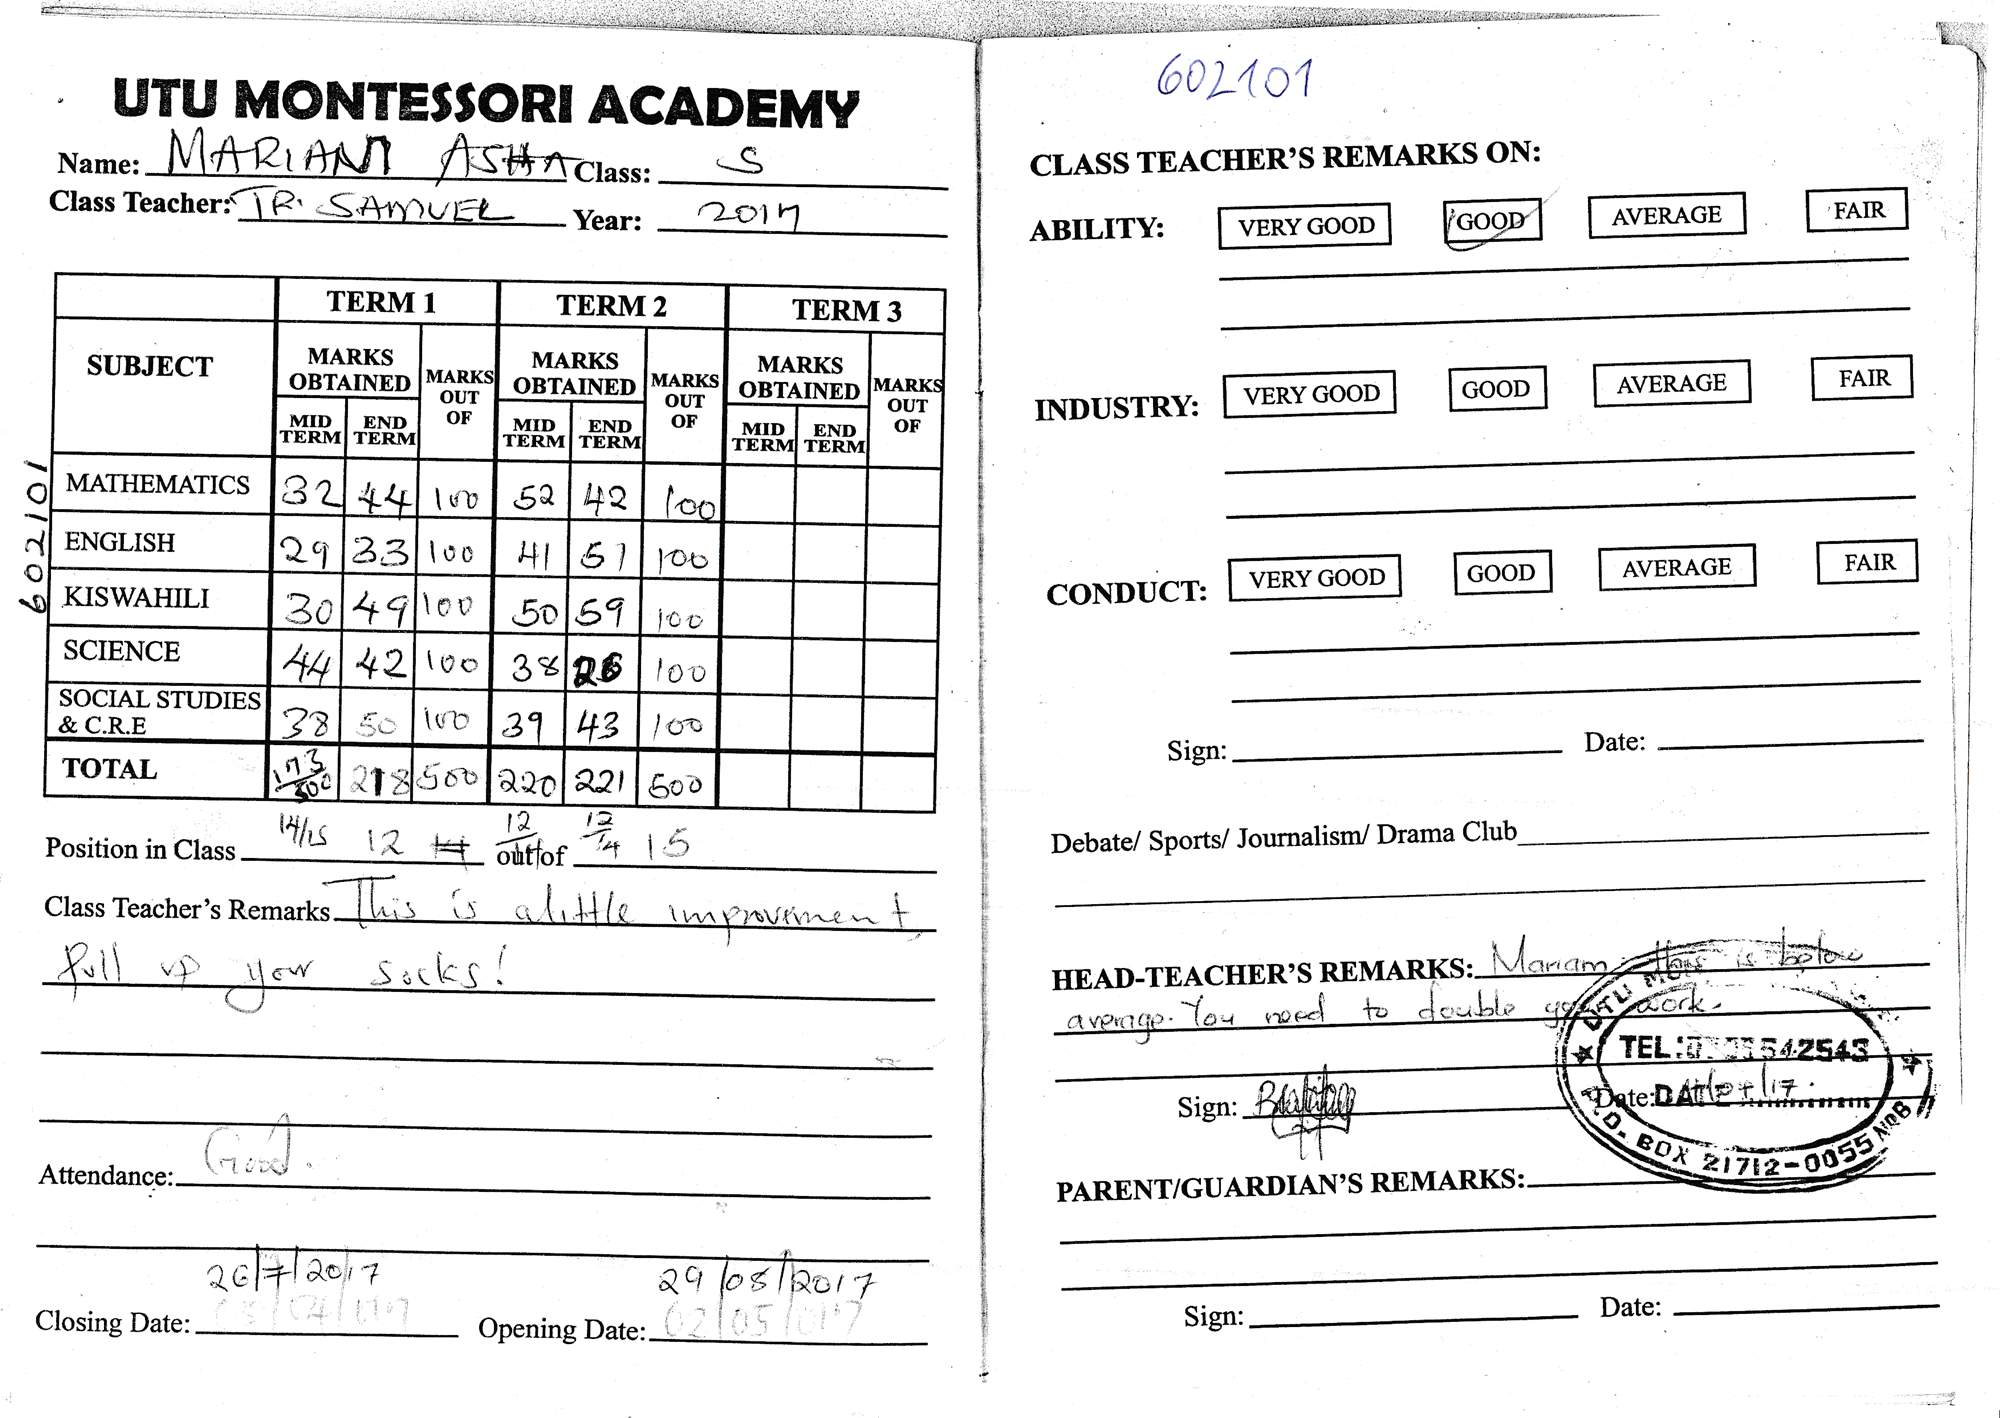 UTU MONTESSORI ACADEMY
Name: MARIAM ASHA Class: 5
Class Teacher: TR. SAMUEL Year: 2017
TERM 1 TERM 2 TERM 3
SUBJECT MARKS OBTAINED MARKS OUT OF MARKS OBTAINED MARKS OUT OF MARKS OBTAINED MARKS OUT OF
MID TERM END TERM MID TERM END TERM MID TERM END TERM
MATHEMATICS 32 44 100 52 42 100
ENGLISH 29 33 100 41 51 100
KISWAHILI 30 49 100 50 59 100
SCIENCE 44 42 100 38 26 100
SOCIAL STUDIES & C.R.E 38 50 100 39 43 100
TOTAL 173/500 218 500 220 221 500
602101
14/15 12 12 12/14 15
Position in Class out of
Class Teacher's Remarks This is a little improvement,
pull up your socks!
Attendance: Good.
26/7/2017 29/08/2017
Closing Date: Opening Date: 02/05/017
602101
CLASS TEACHER'S REMARKS ON:
ABILITY: VERY GOOD GOOD AVERAGE FAIR
INDUSTRY: VERY GOOD GOOD AVERAGE FAIR
CONDUCT: VERY GOOD GOOD AVERAGE FAIR
Sign: Date:
Debate/ Sports/ Journalism/ Drama Club
HEAD-TEACHER'S REMARKS: Mariam, this is below
average. You need to double your work.
UTU
TEL: 542543
Sign: Date: DATE
P.O. BOX 21712-0055 NRB
PARENT/GUARDIAN'S REMARKS:
Sign: Date: